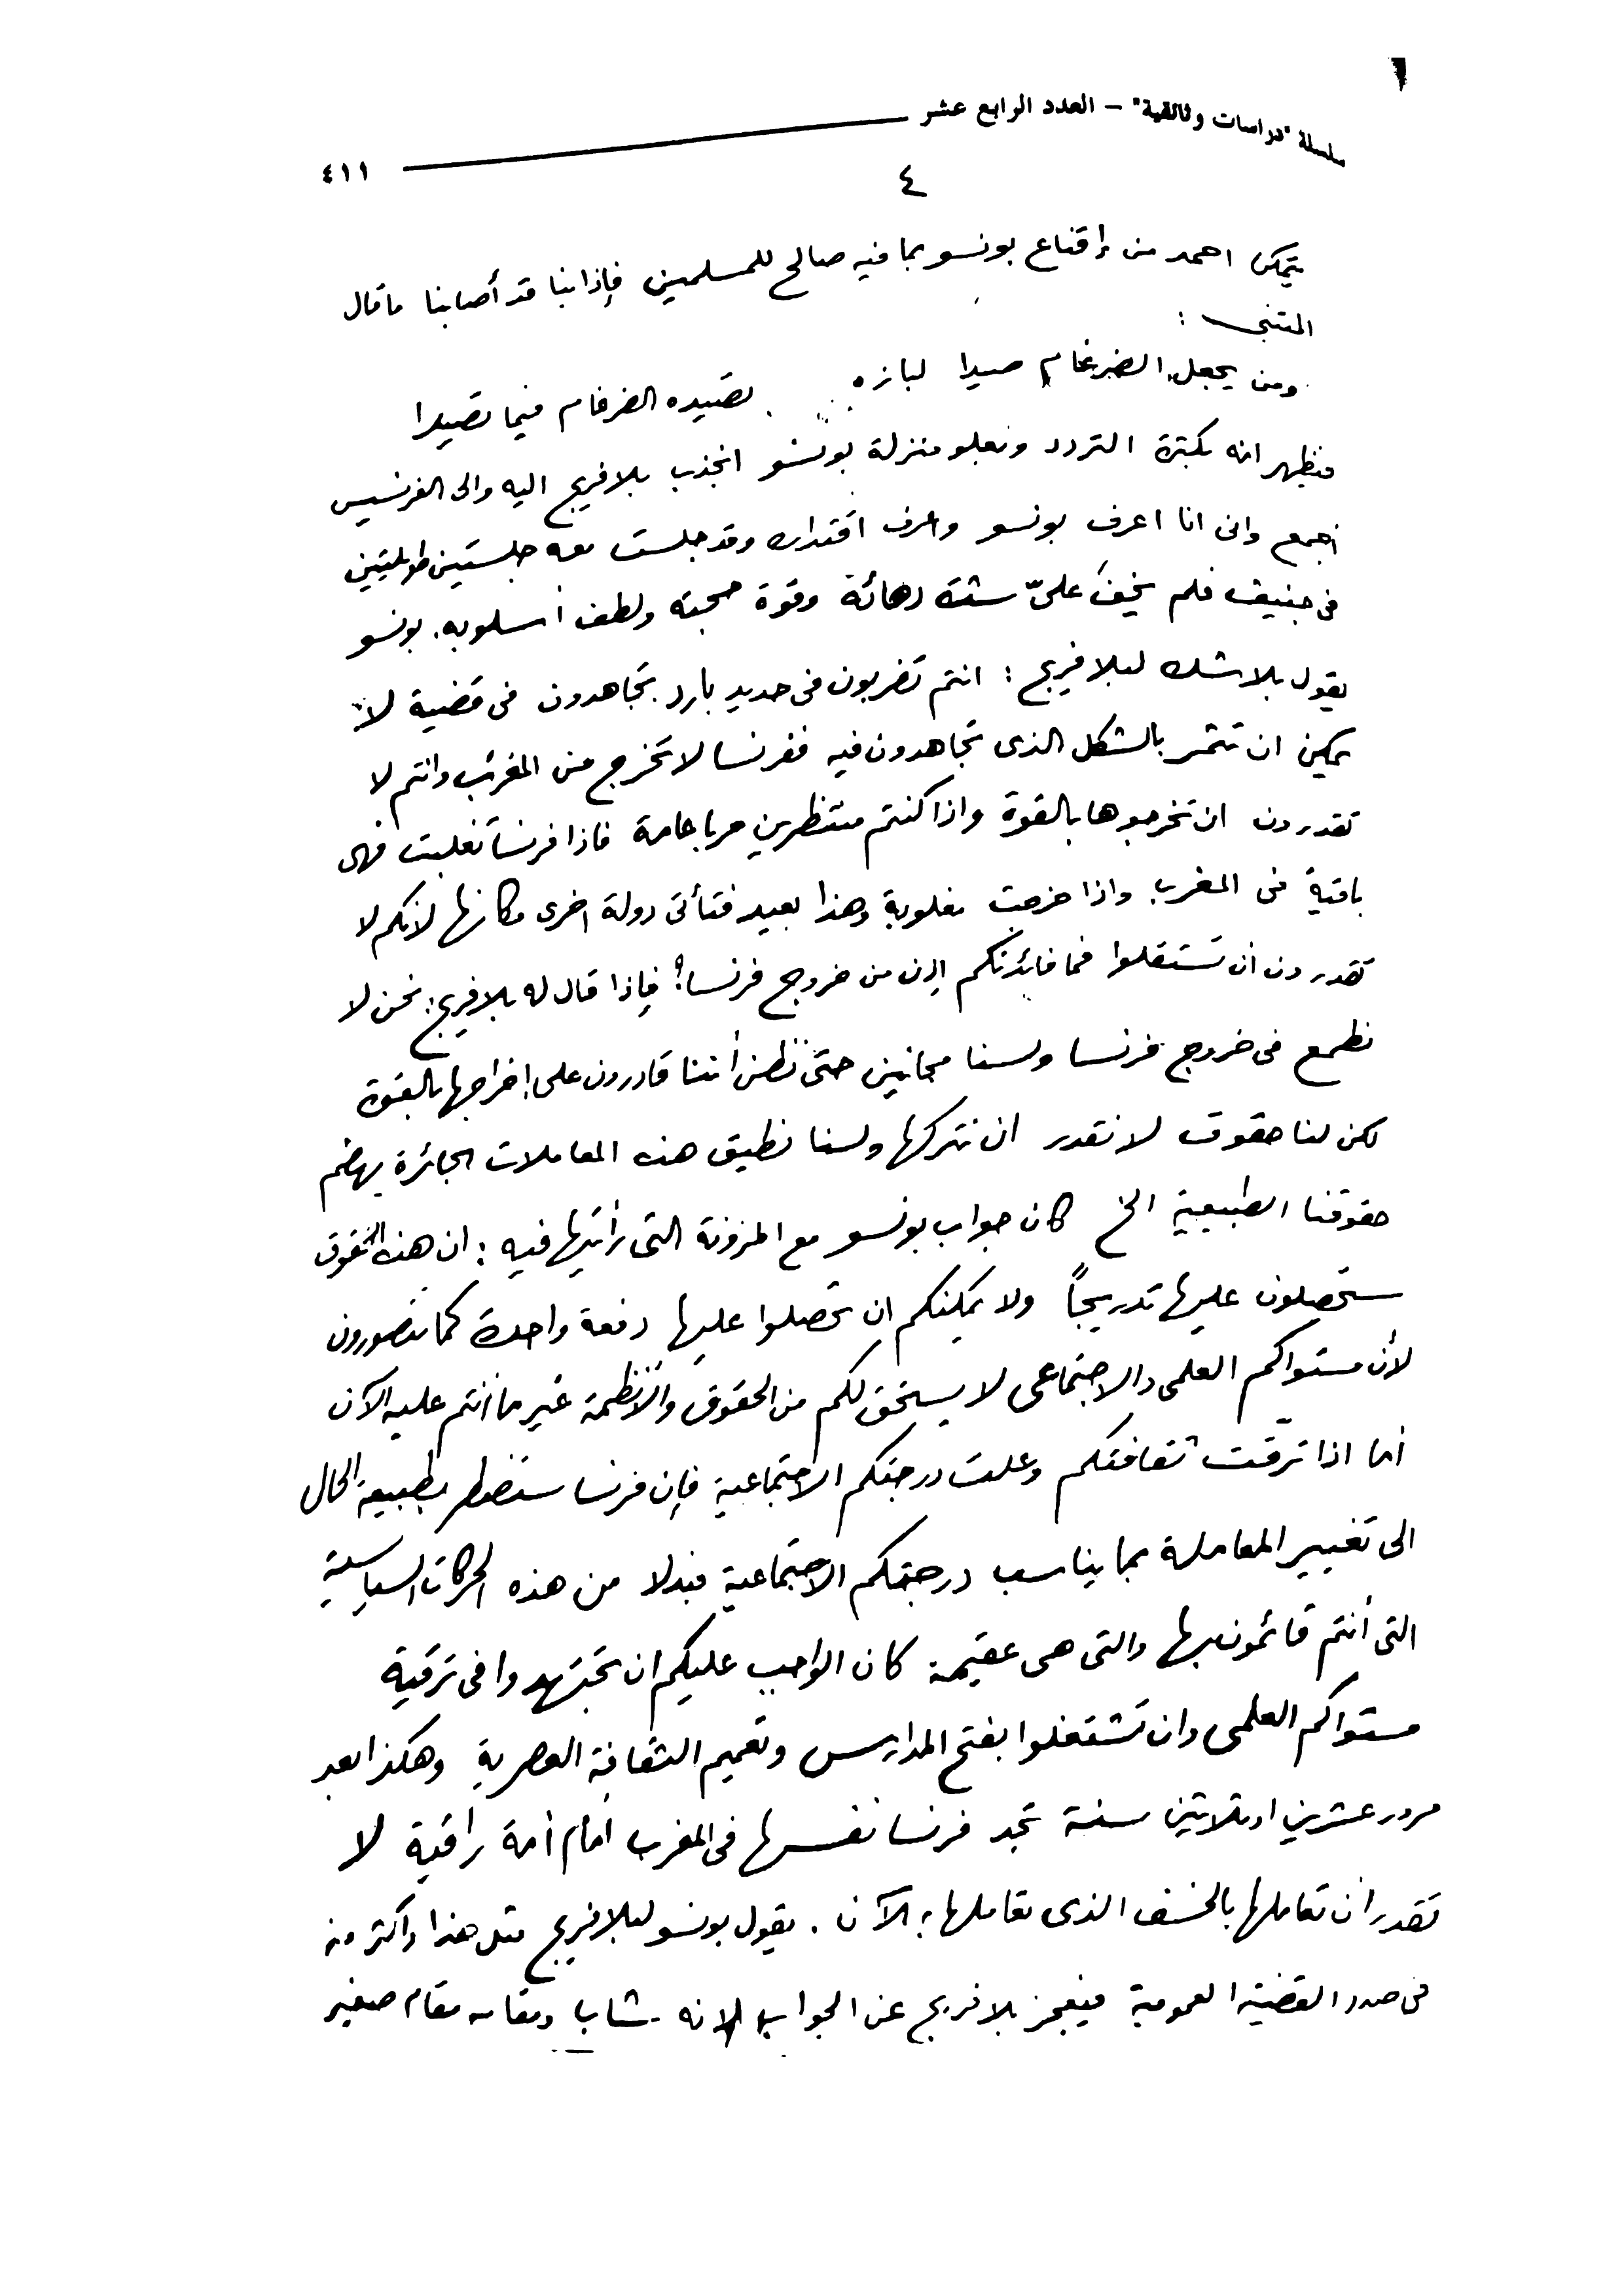 سلسلة "دراسات وثائقية" – العدد الرابع عشر
٤١١
٤
يتمكن احمد من إقناع بونسو بما فيه صالح للمسلمين فإذا بنا قد أصابنا ما قال
المتنبى :
ومن يجعل الضرغام صيدا لبازه تصيده الضرغام فيما تصيدا
فيظهر انه بكثرة التردد وبعلو منزلة بونسو انجذب بلافريج اليه والى الفرنسيس
اجمع وانى انا اعرف بونسو واعرف اقتداره وقد جلست معه جلستين طويلتين
فى جنيف فلم يخف علىّ شدة دهائه وقوة حجته ولطف أسلوبه. بونسو
يقول بلا شك لبلافريج : انتم تضربون فى حديد بارد تجاهدون فى قضية لا
يمكن ان تثمر بالشكل الذى تجاهدون فيه ففرنسا لا تخرج من المغرب وانتم لا
تقدرون ان تخرجوها بالقوة واذا كنتم منتظرين حربا عامة فاذا فرنسا تغلبت فهى
باقية فى المغرب واذا خرجت مغلوبة وهذا بعيد فتأتى دولة اخرى مكانها لانكم لا
تقدرون ان تستقلوا فما فائدتكم إذن من خروج فرنسا؟ فإذا قال له بلافريج: نحن لا
نطمع فى خروج فرنسا ولسنا مجانين حتى نظن أننا قادرون على إخراجها بالقوة
لكن لنا حقوق لا نقدر ان نتركها ولسنا نطيق هذه المعاملات الجائرة بهضم
حقوقنا الطبيعية الخ كان جواب بونسو مع المرونة التى رأيتها فيه : ان هذه الحقوق
ستحصلون عليها تدريجاً ولا يمكنكم ان تحصلوا عليها دفعة واحدة كما تتصورون
لأن مستواكم العلمى والاجتماعى لا يستحق لكم من الحقوق والأنظمة غير ما أنتم عليه الآن
أما اذا ترقت ثقافتكم وعلت درجتكم الاجتماعية فإن فرنسا ستضطر بطبيعة الحال
الى تغيير المعاملة بما يناسب درجتكم الاجتماعية فبدلا من هذه الحركات السياسية
التى أنتم قائمون بها والتى هى عقيمة كان الواجب عليكم ان تجتهدوا فى ترقية
مستواكم العلمى وان تشتغلوا بفتح المدارس وتعميم الثقافة العصرية وهكذا بعد
مرور عشرين او ثلاثين سنة تجد فرنسا نفسها فى المغرب أمام أمة راقية لا
تقدر ان تعاملها بالخسف الذى تعاملها به الآن . يقول بونسو لبلافريج مثل هذا واكثر منه
فى صدد القضية العمومية فيعجز بلافريج عن الجواب لانه شاب ومقامه مقام صغير